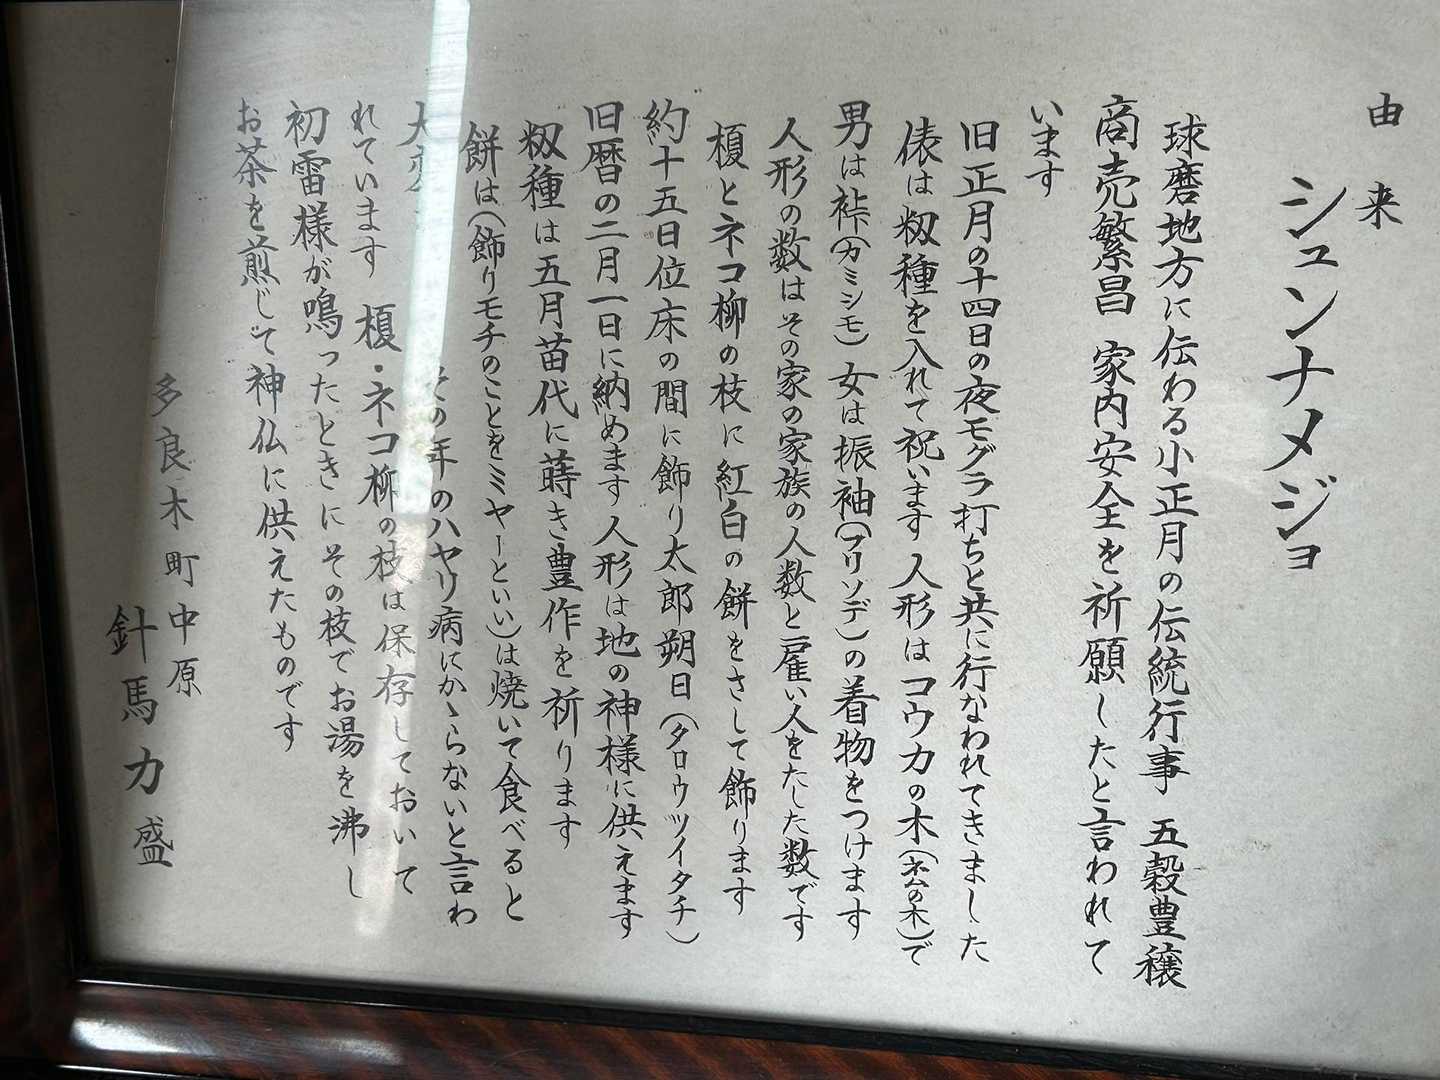 由来
シュンナメジョ
球磨地方に伝わる小正月の伝統行事 五穀豊穣
商売繁昌 家内安全を祈願したと言われて
います
旧正月の十四日の夜モグラ打ちと共に行なわれてきました
俵は籾種を入れて祝います 人形はコウカの木(ネムの木)で
男は裃(カミシモ)女は振袖(フリソデ)の着物をつけます
人形の数はその家の家族の人数と雇い人をたした数です
榎とネコ柳の枝に紅白の餅をさして飾ります
約十五日位床の間に飾り太郎朔日(タロウツイタチ)
旧暦の二月一日に納めます人形は地の神様に供えます
籾種は五月苗代に蒔き豊作を祈ります
餅は(飾りモチのことをミヤーといい)は焼いて食べると
その年のハヤリ病にかゝらないと言わ
れています 榎・ネコ柳の枝は保存しておいて
初雷様が鳴ったときにその枝でお湯を沸し
お茶を煎じて神仏に供えたものです
多良木町中原
針馬力盛